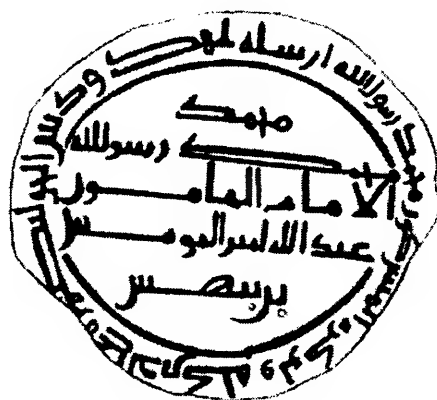 محمد رسول الله ارسله بالهدى ودين الحق ليظهره على الدين كله ولو كره المشركون
محمد
محمد رسول الله
الامام المامون
عبد الله امير المومنين